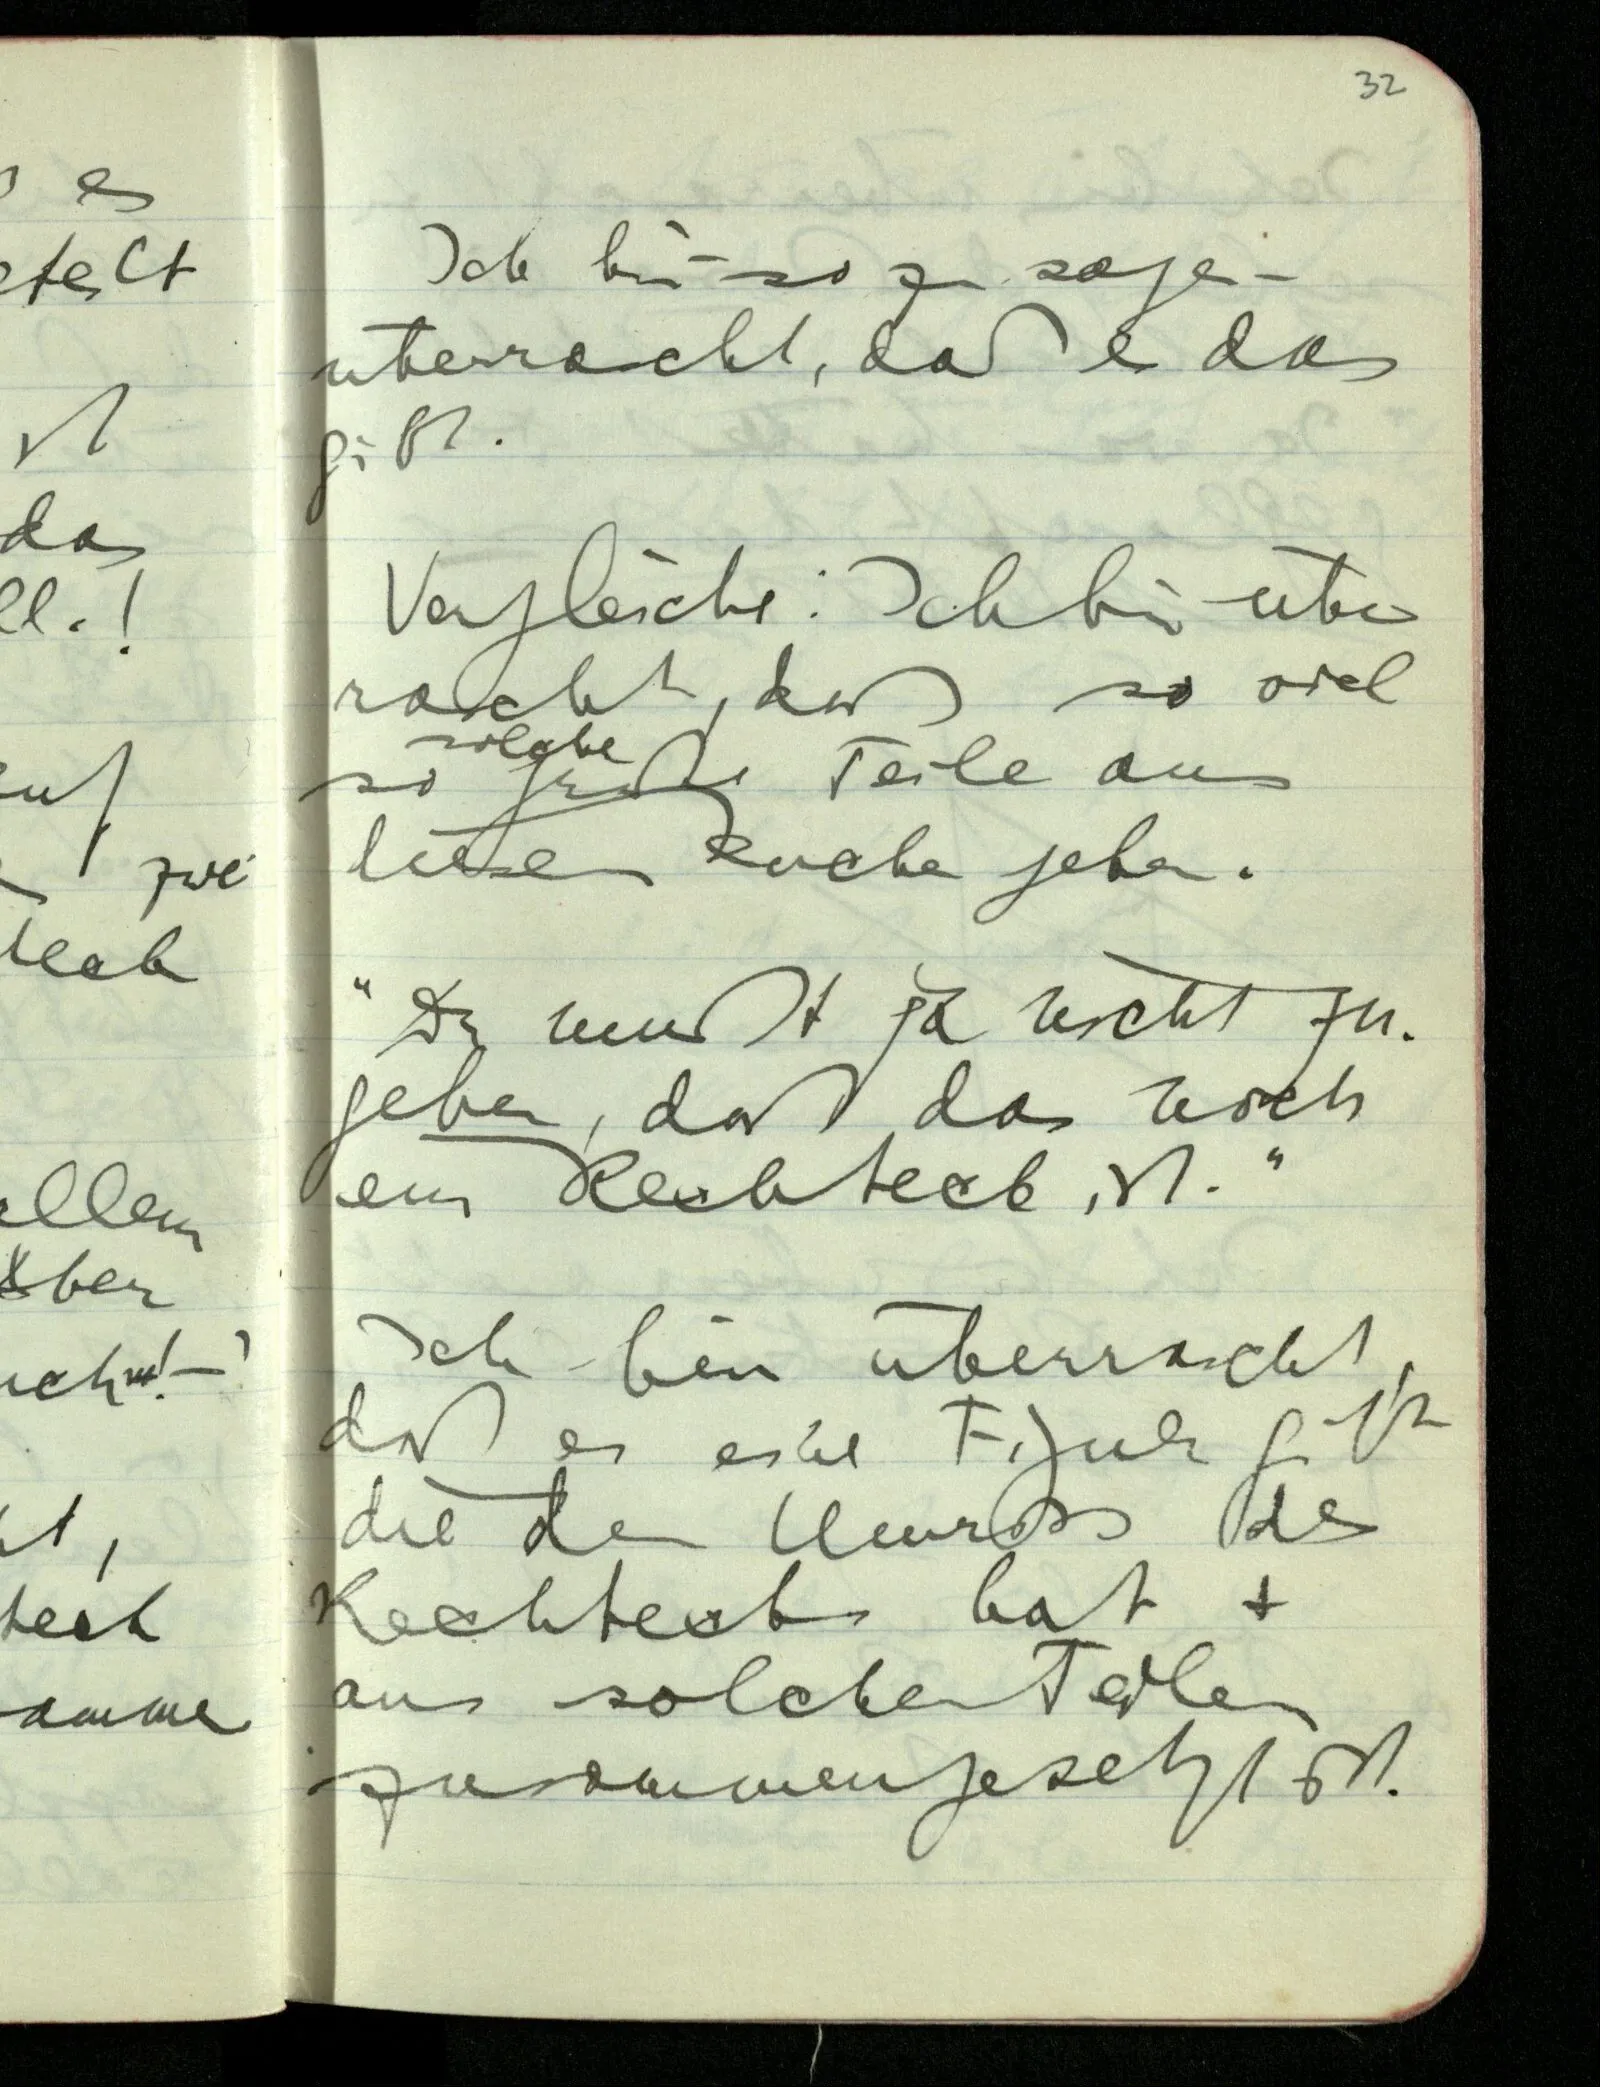 32
Ich bin – so zu sagen –
überrascht, daß es das
gibt.
Vergleiche: Ich bin über
rascht, daß so viel
solche
so große Teile aus
diesem Kuchen gehen.
"Du mußt ja nicht zu-
geben, daß das noch
ein Rechteck ist."
Ich bin überrascht,
daß es eine Figur gibt
die den Umriss des
Rechtecks hat +
aus solchen Teilen
zusammengesetzt ist.
es
ist
das
ll.!
auf
zwei
teck
allem
über
teck